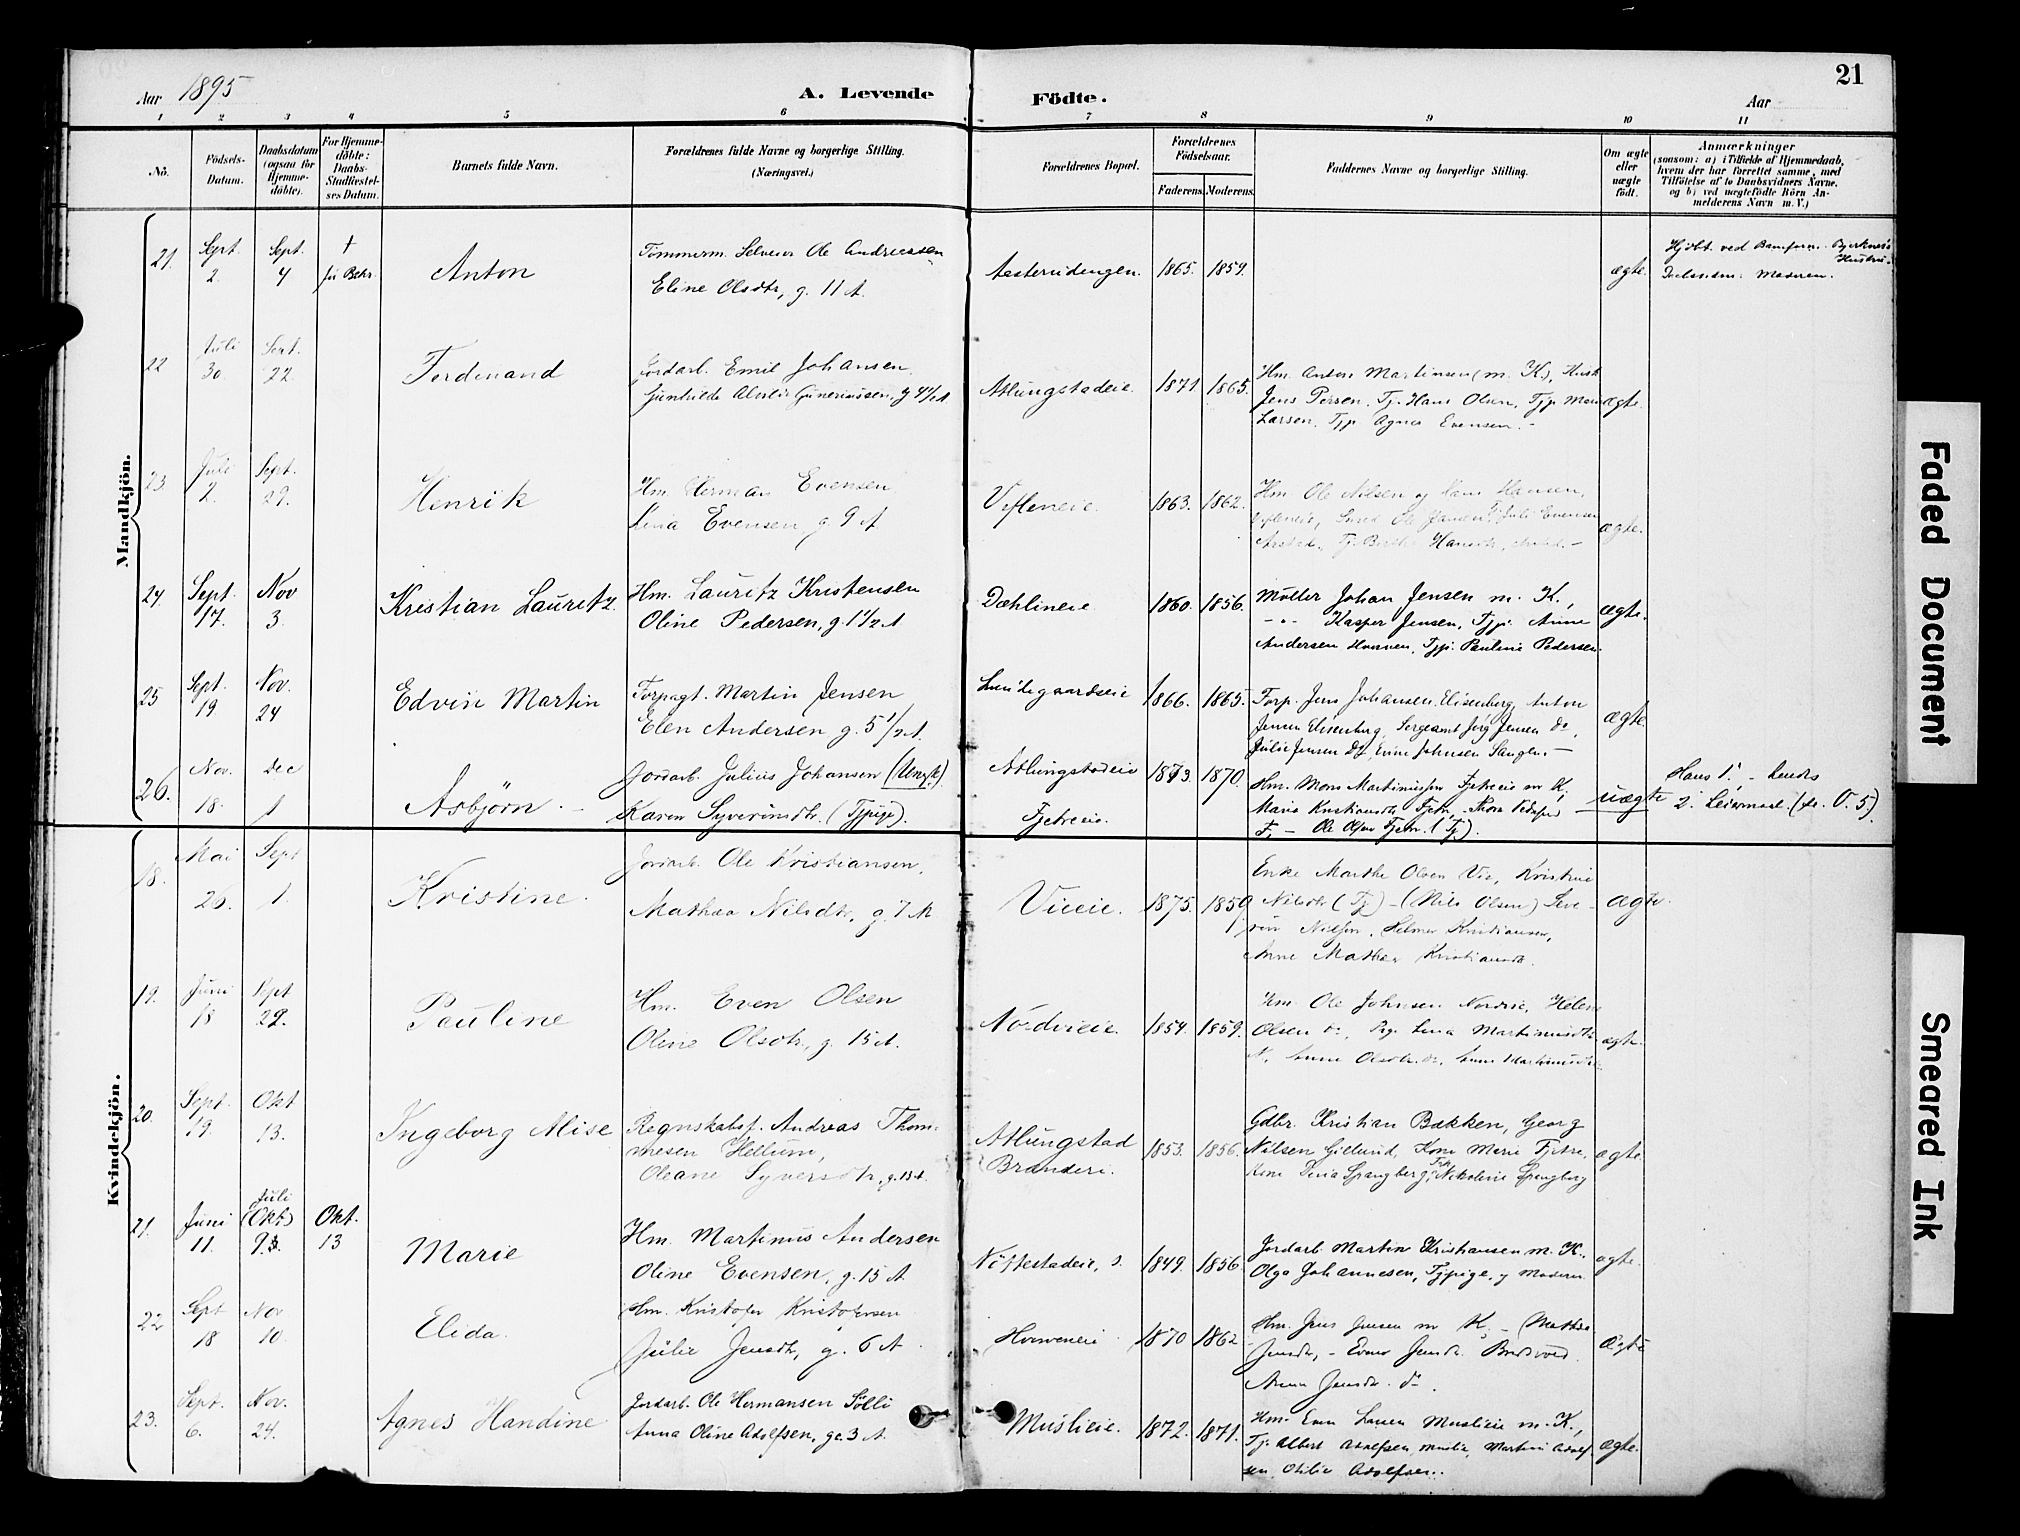 21
Aar 1895
A. Levende Födte.
Aar
1 2 3 4 5 6 7 8 9 10 11
No.
Födsels-Datum.
Daabsdatum (ogsaa for Hjemmedöbte).
For Hjemmedöbte: Daabs-Stadfæstelses Datum.
Barnets fulde Navn.
Forældrenes fulde Navne og borgerlige Stilling. (Næringsvei.)
Forældrenes Bopæl.
Forældrenes Födselsaar.
Faderens. Moderens.
Faddernes Navne og borgerlige Stilling.
Om ægte eller uægte födt.
Anmærkninger
(saasom: a) i Tilfælde af Hjemmedaab, hvem der har forrettet samme, med Tilföielse af to Daabsvidners Navne, og b) ved uægtefödte Börn Anmelderens Navn m. V.)
Mandkjön.
21. Sept. 2. Sept. 4 † før Bekr. Anton
Tømmerm. Selveier Ole Andreassen
Eline Olsdtr, g. 11 A.
1865. 1859. ægte.
Hjdbt. ved
Moderen.
22 Juli 30. Sept. 22. Ferdinand
Jordarb. Emil Johansen
Atlungstadeie 1871 1865.
Hm. Anton Martinsen (m. K),
Jens Persen. Tj. Hans Olsen, Tjp. ægte.
Larsen. Tjp. Agnes Evensen. -
23. Juli 2. Sept. 29. Henrik
Hm. Herman Evensen
Lina Evensen g. 9 A
1863. 1862.
Hm. Ole Nilsen og Hans Hansen,
ægte.
24. Sept. 17. Nov 3. Kristian Lauritz.
Hm. Lauritz Kristensen
Oline Pedersen, g. 1 1/2 A
Dæhlineie 1860. 1856.
Møller Johan Jensen m. K.,
- " - Kasper Jensen, Tjp. Anne
Andersen Hovven, Tjp. Pauline Pedersen.
ægte.
25 Sept. 19. Nov. 24 Edvin Martin
Forpagt. Martin Jensen
Elen Andersen g. 5 1/2 A.
1866. 1865.
Forp. Jens Johansen Elisenberg, Anton
Jensen Elisenberg, Sergeant Jørg. Jensen do,
ægte
26. Nov. 18. Dec 1 Asbjørn. -
Jordarb. Julius Johansen (Ungk.)
Karen Syverinsdtr. (Tjpige).
Atlungstadeie
Fjetreeie.
1873. 1870.
Hm. Mons Martiniussen Fjetreeie m K,
Ole Olsen Fjetre. (Tj).
uægte
Hans 1. - hendes
2. Leiermaal. (fr. O. 5)
Kvindekjön.
18. Mai 26. Sept 1. Kristine.
Jordarb. Ole Kristiansen,
Mathea Nilsdtr, g. 7 A
Vieeie. 1875. 1859
Enke Marthe Olsen Vie, Kristine
Nilsdtr (Tj) - (Nils Olsen) Seve-
rin Nilssen, Helmer Kristiansen,
Anne Mathea Kristiansdtr.
ægte.
19. Juni 18 Sept 29. Pauline
Hm. Even Olsen
Oline Olsdtr, g. 15 A.
Nordvieie. 1854. 1859.
Hm Ole Johnsen Nordvie, Helene
Olsen do, Pige Lina Martiniusdtr
ægte.
20. Sept. 19. Okt 13. Ingeborg Alise
Regnskabsf. Andreas Thom-
mesen Hellum,
Oleane Syversdtr, g. 13 A.
Atlungstad
Brænderi.
1853. 1856.
Gdbr. Kristian Bakken, Georg
Nilsen Gillund, Kone Marie Fjetre,
Kone Lina Spangberg, Frk. Nikoline Spangberg
ægte.
21. Juni 11. Juli (Okt) 9. Okt. 13 Marie
Hm. Martinus Andersen
Oline Evensen, g. 15 A
Nøttestadeie, s. 1849. 1856.
Jordarb. Martin Kristiansen m. K.
Olga Johannesen, Tjpige, g Moderen
ægte.
22 Sept 18 Nov 10. Elida.
Hm. Kristofer Kristofersen
Julie Jensdtr, g. 6 A.
Hovveneie 1870 1862
Hm. Jens Jensen m K, - (Mathea
Jensdtr, -
Anna Jensdtr. do.
ægte
23. Sept. 6. Nov. 24. Agnes Handine
Jordarb. Ole Hermansen Sølli
Anna Oline Adolfsen, g. 3 A.
Muslieie. 1872. 1871.
Hm. Even Larsen Muslieie m. K.,
Tj. Albert Adolfsen, Muslie, Martin Adolf-
sen, Otilie Adolfsen.
ægte.
Faded Document
Smeared Ink